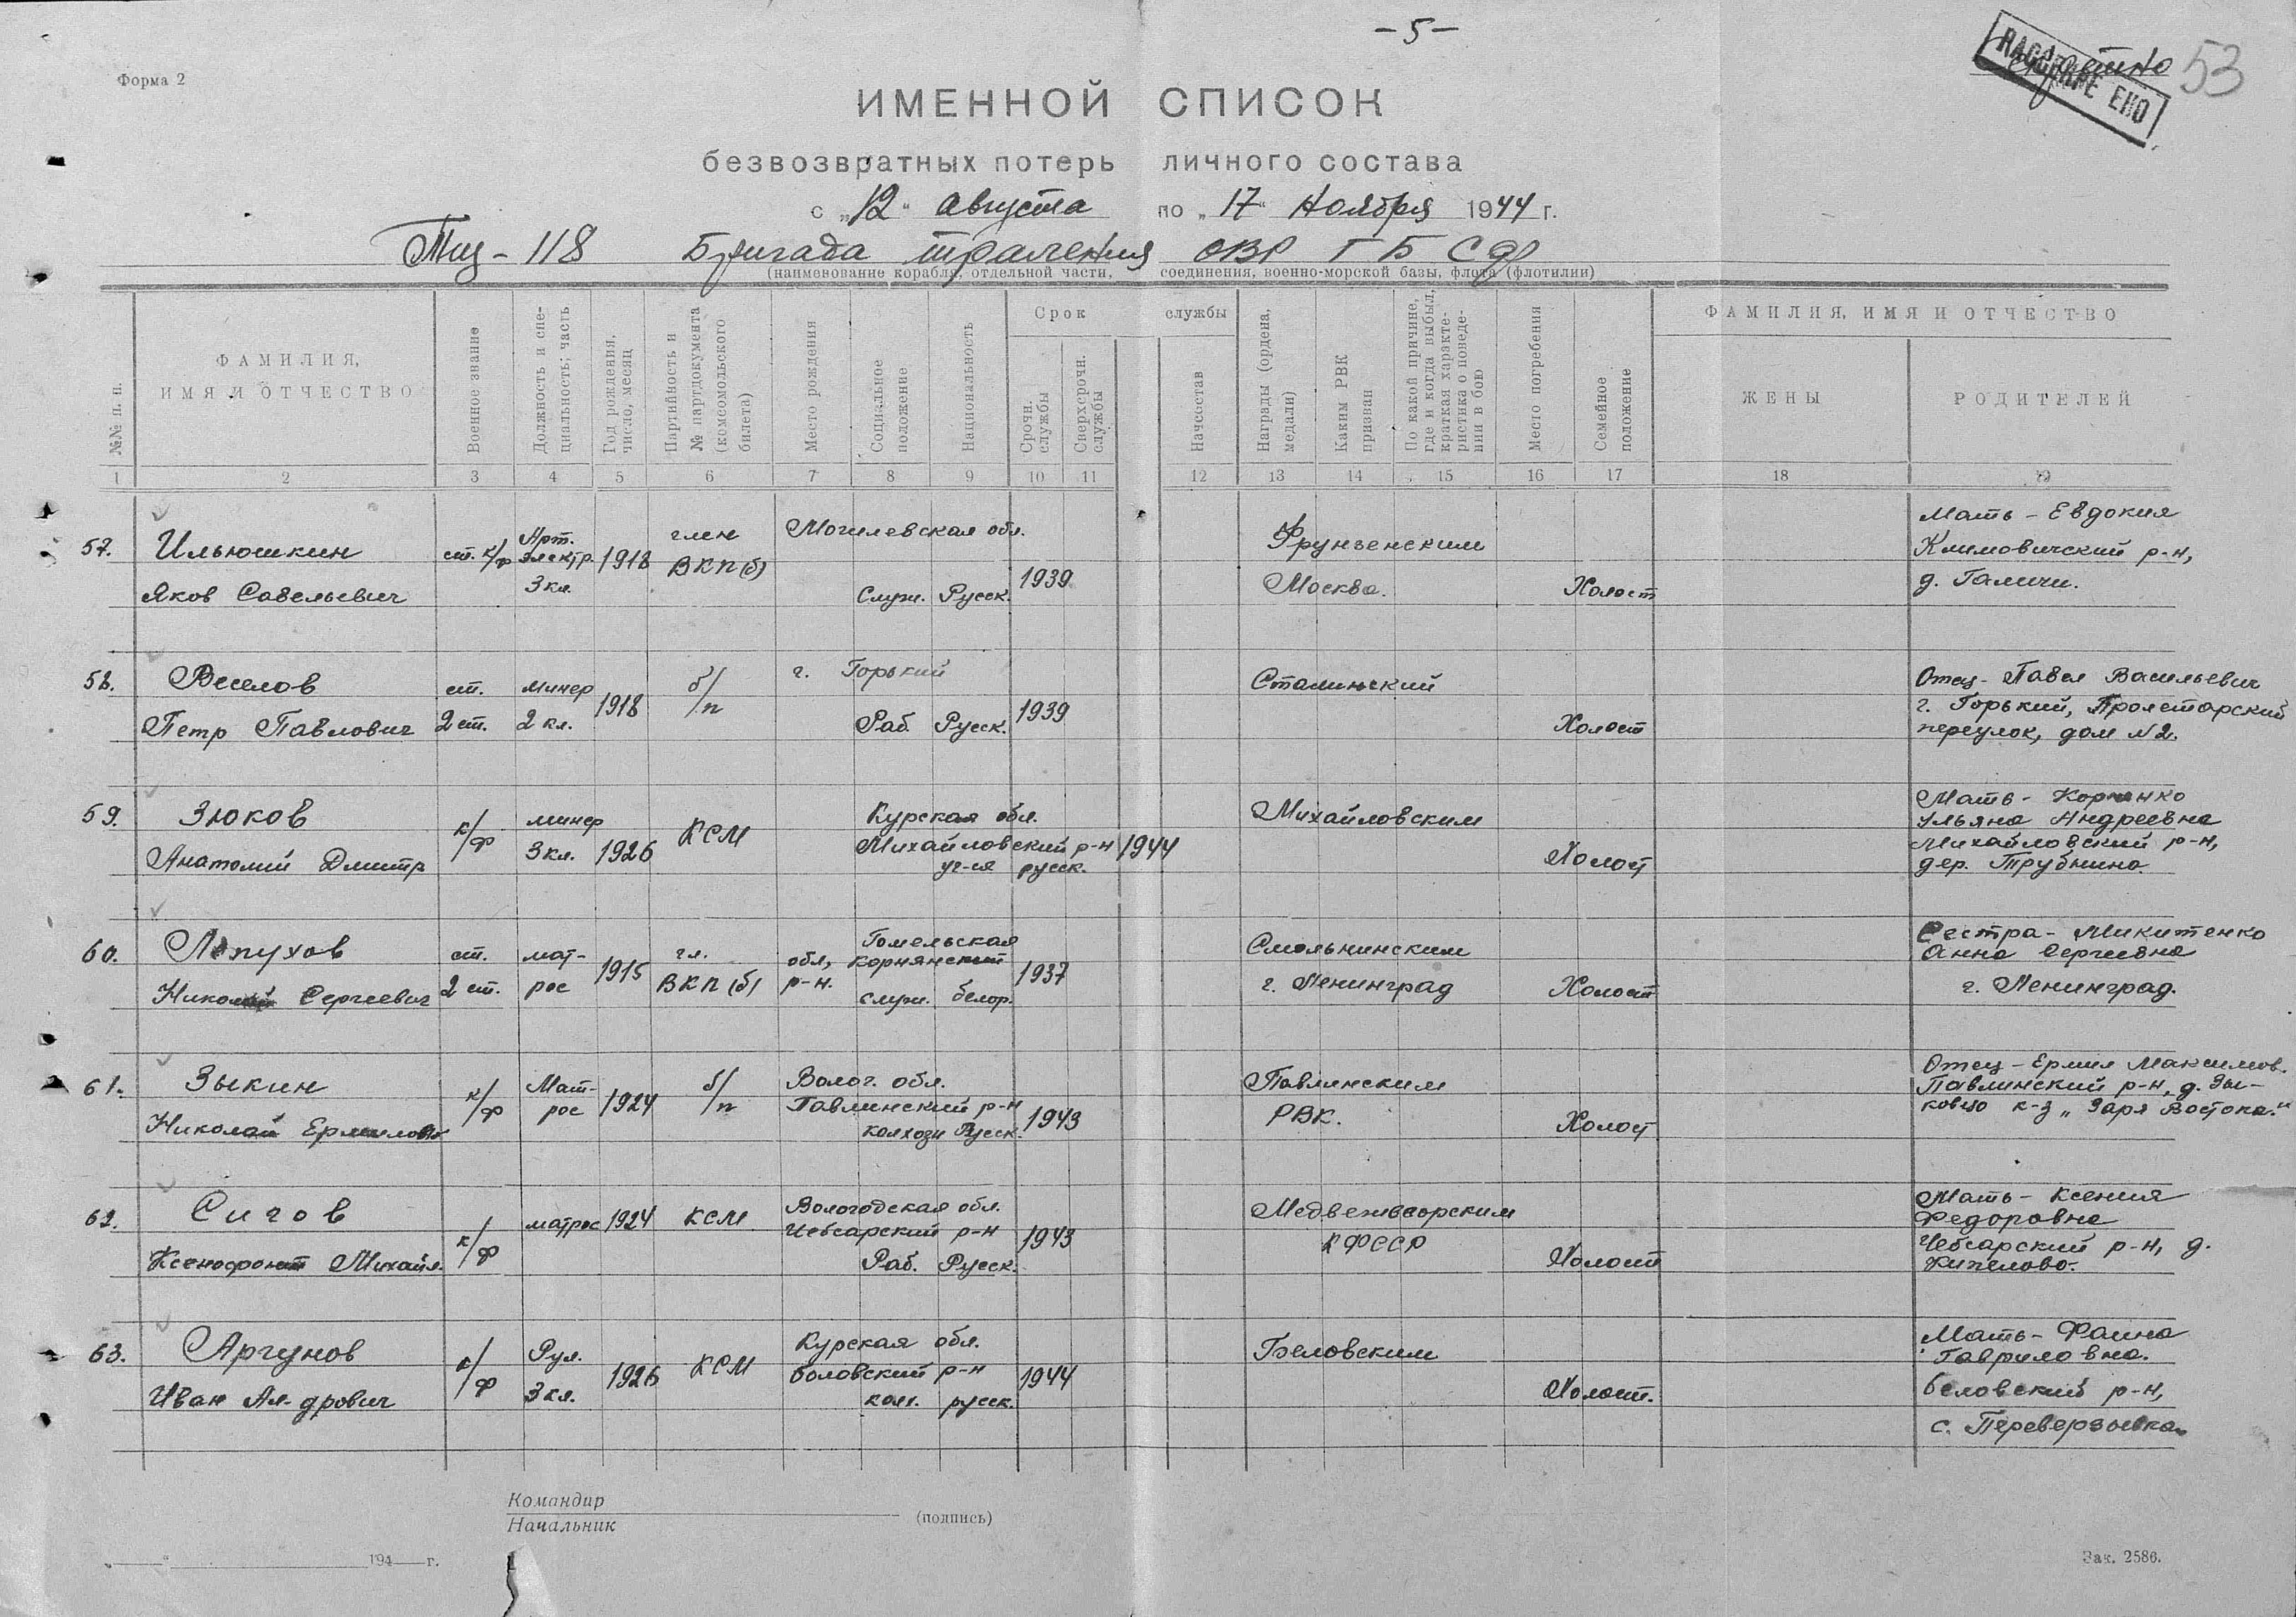 – 5 –
Форма 2
53
ИМЕННОЙ СПИСОК
безвозвратных потерь личного состава
с „12“ августа по „17“ Ноября 1944 г.
Тщ-118 Бригада траления ОВР ГБ СФ
(наименование корабля, отдельной части, соединения, военно-морской базы, флота (флотилии)
№№ п. п.
ФАМИЛИЯ, ИМЯ И ОТЧЕСТВО
Военное звание
Должность и специальность; часть
Год рождения, число, месяц
Партийность и № партдокумента (комсомольского билета)
Место рождения
Социальное положение
Национальность
Срок службы
Срочн. службы
Сверхсрочн. службы
Начсостав
Награды (ордена, медали)
Каким РВК призван
По какой причине, где и когда выбыл, краткая характеристика о поведении в бою
Место погребения
Семейное положение
ФАМИЛИЯ, ИМЯ И ОТЧЕСТВО
ЖЕНЫ
РОДИТЕЛЕЙ
1 2 3 4 5 6 7 8 9 10 11 12 13 14 15 16 17 18 19
57. Ильюшкин Яков Савельевич ст. к/ф Арт. электр. 3 кл. 1918 член ВКП(б) Могилевская обл. Служ. Русск. 1939 Фрунзенским Москва. Холост Мать - Евдокия
Климовичский р-н,
д. Галичи.
58. Веселов Петр Павлович ст. 2 ст. минер 2 кл. 1918 б/п г. Горький Раб. Русск. 1939 Сталинский Холост Отец - Павел Васильевич
г. Горький, Пролетарский
переулок, дом №2.
59. Зюков Анатолий Дмитр к/ф минер 3 кл. 1926 КСМ Курская обл. Михайловский р-н уч-ся русск. 1944 Михайловским Холост Мать -
Ульяна Андреевна
Михайловский р-н,
дер. Трубнина.
60. Лопухов Николай Сергеевич ст. 2 ст. матрос 1915 чл. ВКП(б) Гомельская обл, Кормянский р-н. служ. белор. 1937 Смольнинским г. Ленинград Холост Сестра - Микитенко
Анна Сергеевна
г. Ленинград.
61. Зыкин Николай Ермилов к/ф Мат-рос 1924 б/п Волог. обл. Павлинский р-н колхозн Русск. 1943 Павлинским РВК. Холост Отец - Ермил Максимов.
Павлинский р-н, д. Зы-
ково к-з „Заря Востока."
62. Сигов Ксенофонт Михайл. к/ф матрос 1924 КСМ Вологодская обл. Чебсарский р-н Раб. Русск. 1943 Медвежьегорским КФССР Холост Мать - Ксения
Федоровна
Чебсарский р-н, д.
Кипелово.
63. Аргунов Иван Ал-дрович к/ф Рул. 3 кл. 1926 КСМ Курская обл. Беловский р-н колх. русск. 1944 Беловским Холост. Мать - Фаина
Гавриловна.
Беловский р-н,
с. Переверзевка
Командир
Начальник
(подпись)
„ “ 194 г.
Зак. 2586.